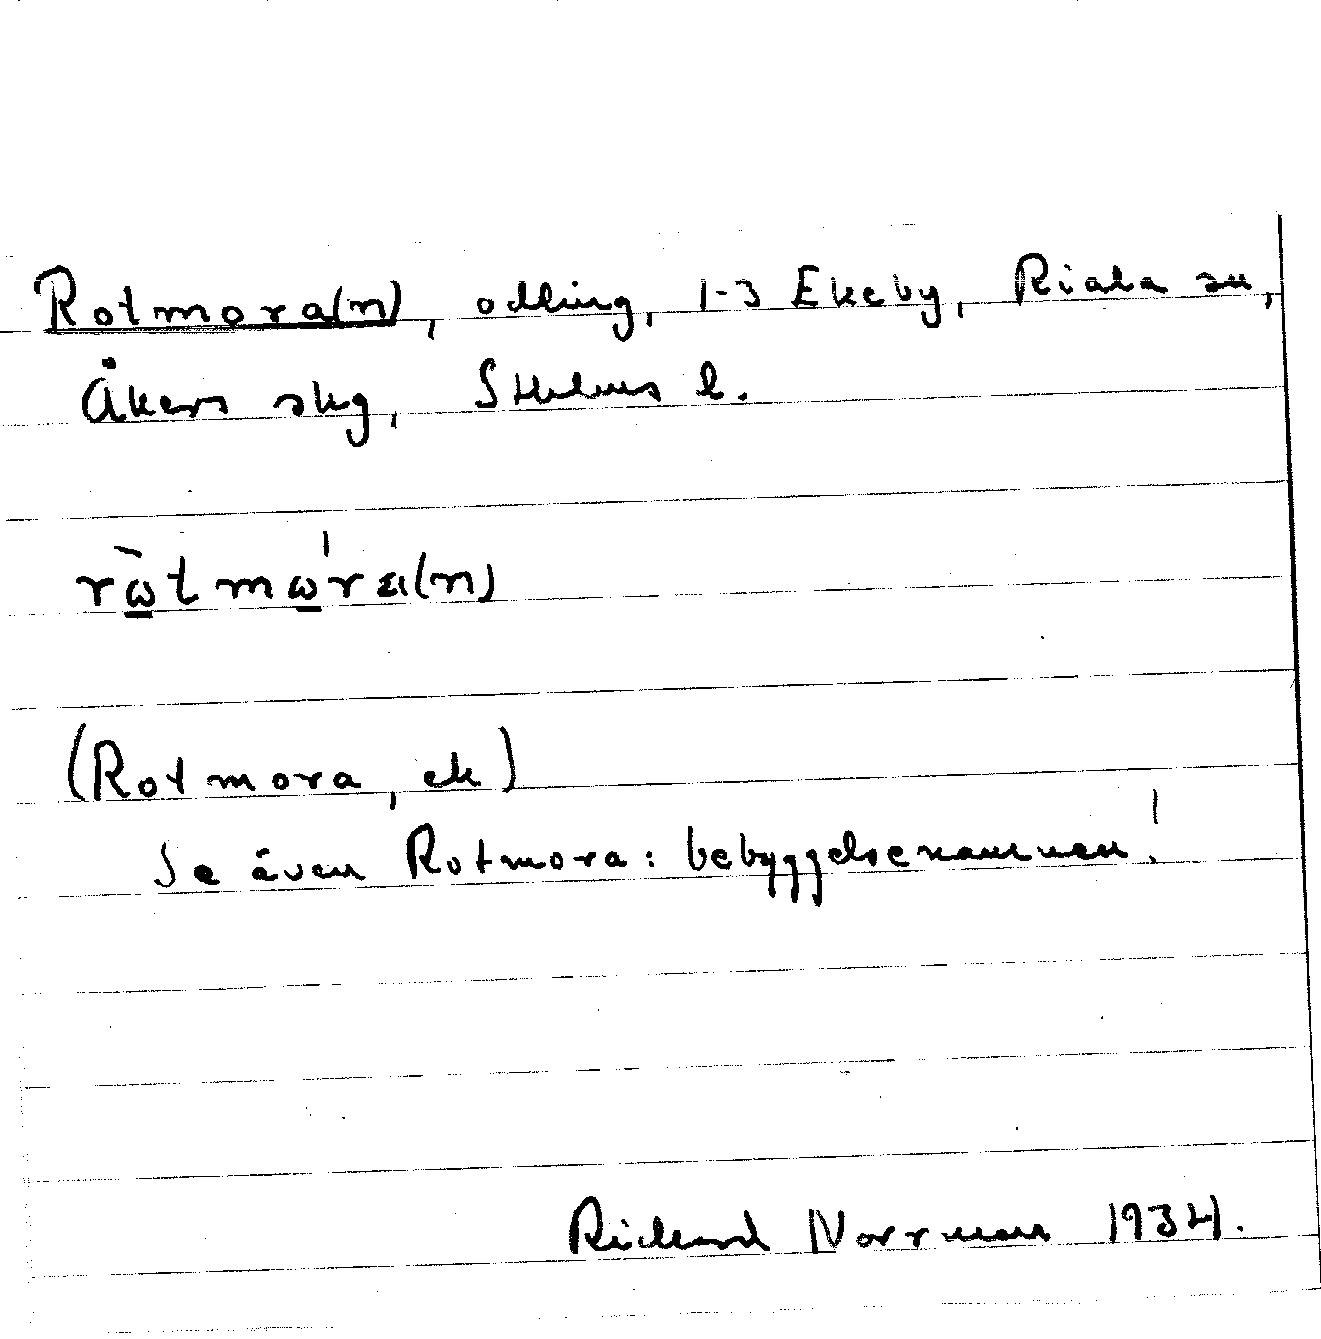 Rotmora(n), odling, 1-3 Ekeby, Riala sn,
Åkers skg, Sthlms l.
rὼ̲tmώ̲ra(n)
(Rotmora, ek)
Se även Rotmora: bebyggelsenamnen!
Rickard Norrman 1934.